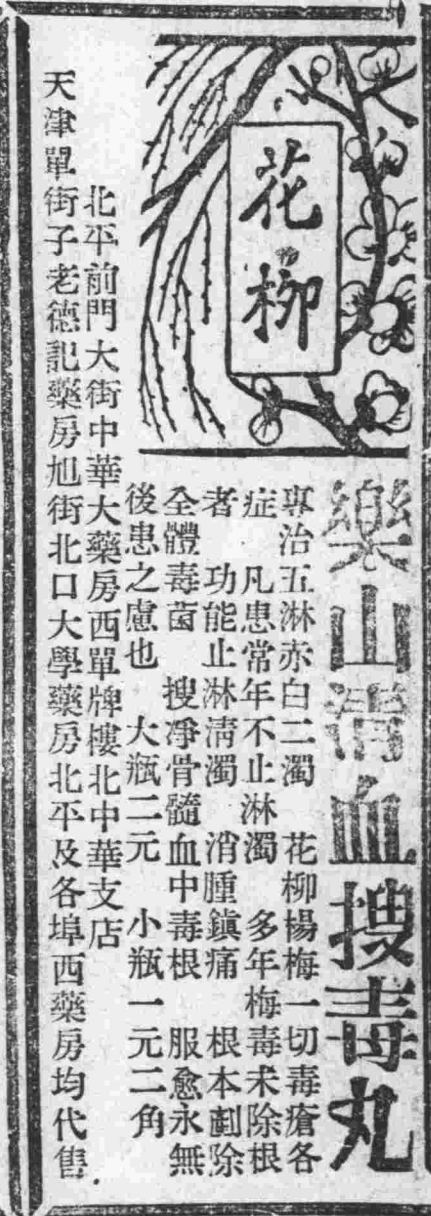 花柳
樂山清血搜毒丸
專治五淋赤白二濁　花柳楊梅一切毒瘡各
症　凡患常年不止淋濁　多年梅毒未除根
者　功能止淋清濁　消腫鎮痛　根本剷除
全體毒菌　搜凈骨髓血中毒根　服愈永無
後患之慮也　大瓶二元　小瓶一元二角
北平前門大街中華大藥房西單牌樓北中華支店
天津單街子老德記藥房旭街北口大學藥房北平及各埠西藥房均代售.